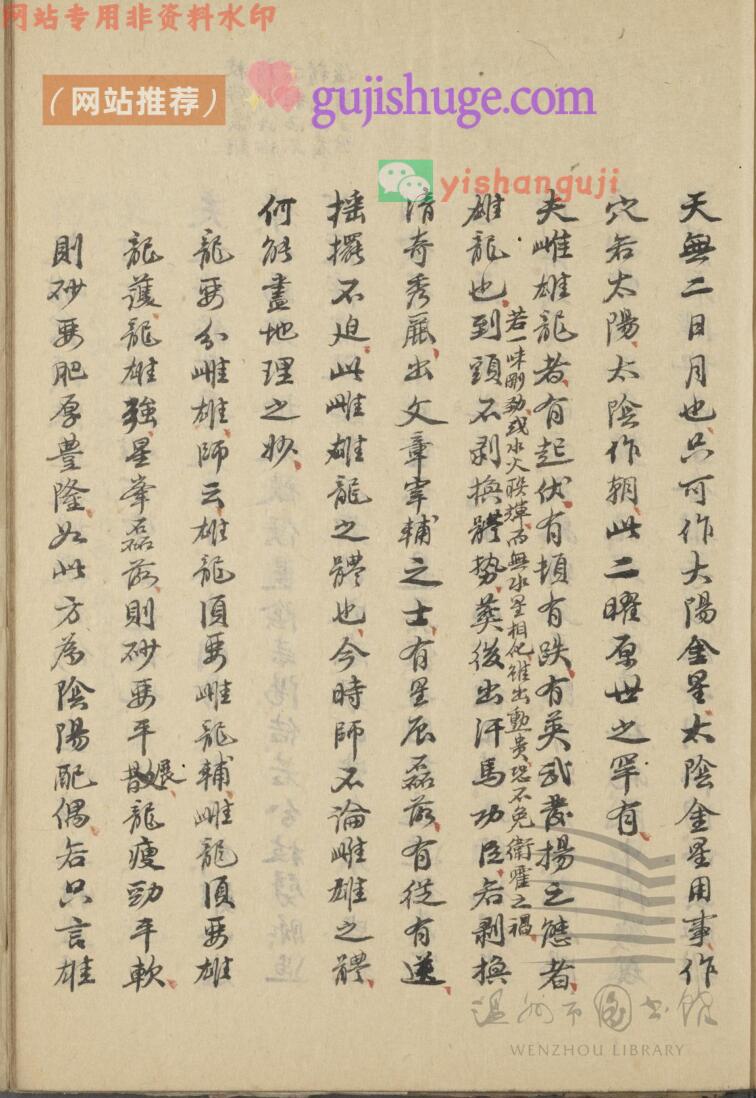 网站专用非资料水印
（网站推荐）
gujishuge.com
yishanguji
天無二日月也只可作太陽金星太陰金星用事作
穴若太陽太陰作朝此二曜原世之罕有
夫雌雄龍者有起伏有頓有跌有英武發揚之態者
雄龍也到頭不剥換體勢葬後出汗馬功臣若剥換
若一味剛勁或水火联輝而無水星相化雖出勳貴恐不免衛霍之禍
清奇秀麗出文章宰輔之士有星辰磊落有從有送
摇擺不迫此雌雄龍之體也今時師不論雌雄之體
何能盡地理之妙
龍要分雌雄師云雄龍須要雌龍輔雌龍須要雄
龍護龍雄強星峯磊落則砂要平散展龍瘦勁平軟
則砂要肥厚豊隆如此方為陰陽配偶若只言雄
温州市图书馆
WENZHOU LIBRARY